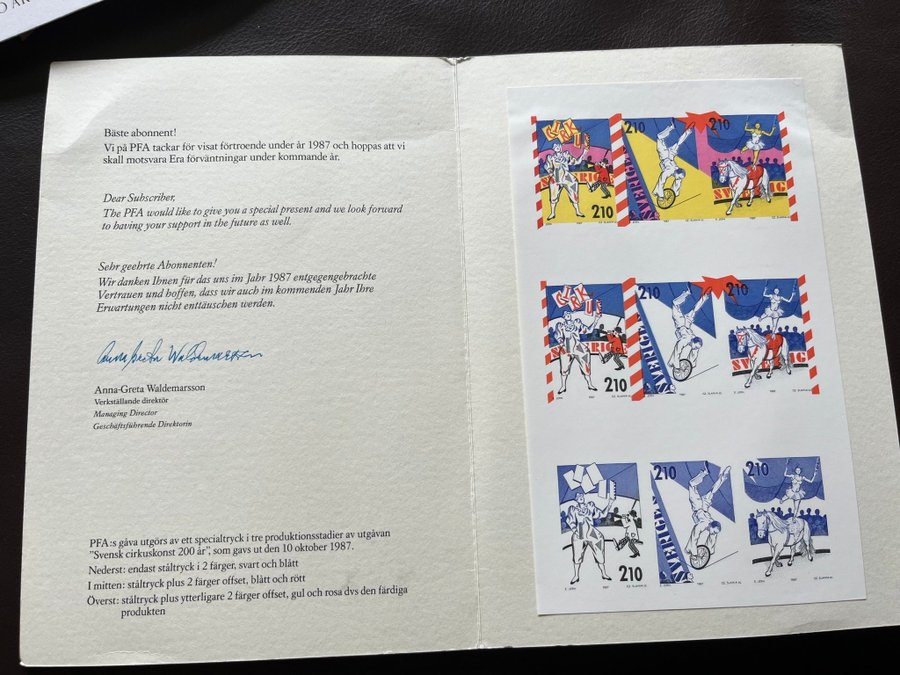 Bäste abonnent!
Vi på PFA tackar för visat förtroende under år 1987 och hoppas att vi
skall motsvara Era förväntningar under kommande år.
Dear Subscriber,
The PFA would like to give you a special present and we look forward
to having your support in the future as well.
Sehr geehrte Abonnenten!
Wir danken Ihnen für das uns im Jahr 1987 entgegengebrachte
Vertrauen und hoffen, dass wir auch im kommenden Jahr Ihre
Erwartungen nicht enttäuschen werden.
Anna-Greta Waldemarsson
Verkställande direktör
Managing Director
Geschäftsführende Direktorin
PFA:s gåva utgörs av ett specialtryck i tre produktionsstadier av utgåvan
"Svensk cirkuskonst 200 år", som gavs ut den 10 oktober 1987.
Nederst: endast ståltryck i 2 färger, svart och blått
I mitten: ståltryck plus 2 färger offset, blått och rött
Överst: ståltryck plus ytterligare 2 färger offset, gul och rosa dvs den färdiga
produkten
CIRKUS
SVERIGE
210
210
SVERIGE
210
SVERIGE
1987
1987
1987
CIRKUS
SVERIGE
210
210
SVERIGE
210
SVERIGE
1987
1987
1987
210
210
SVERIGE
210
1987
1987
1987